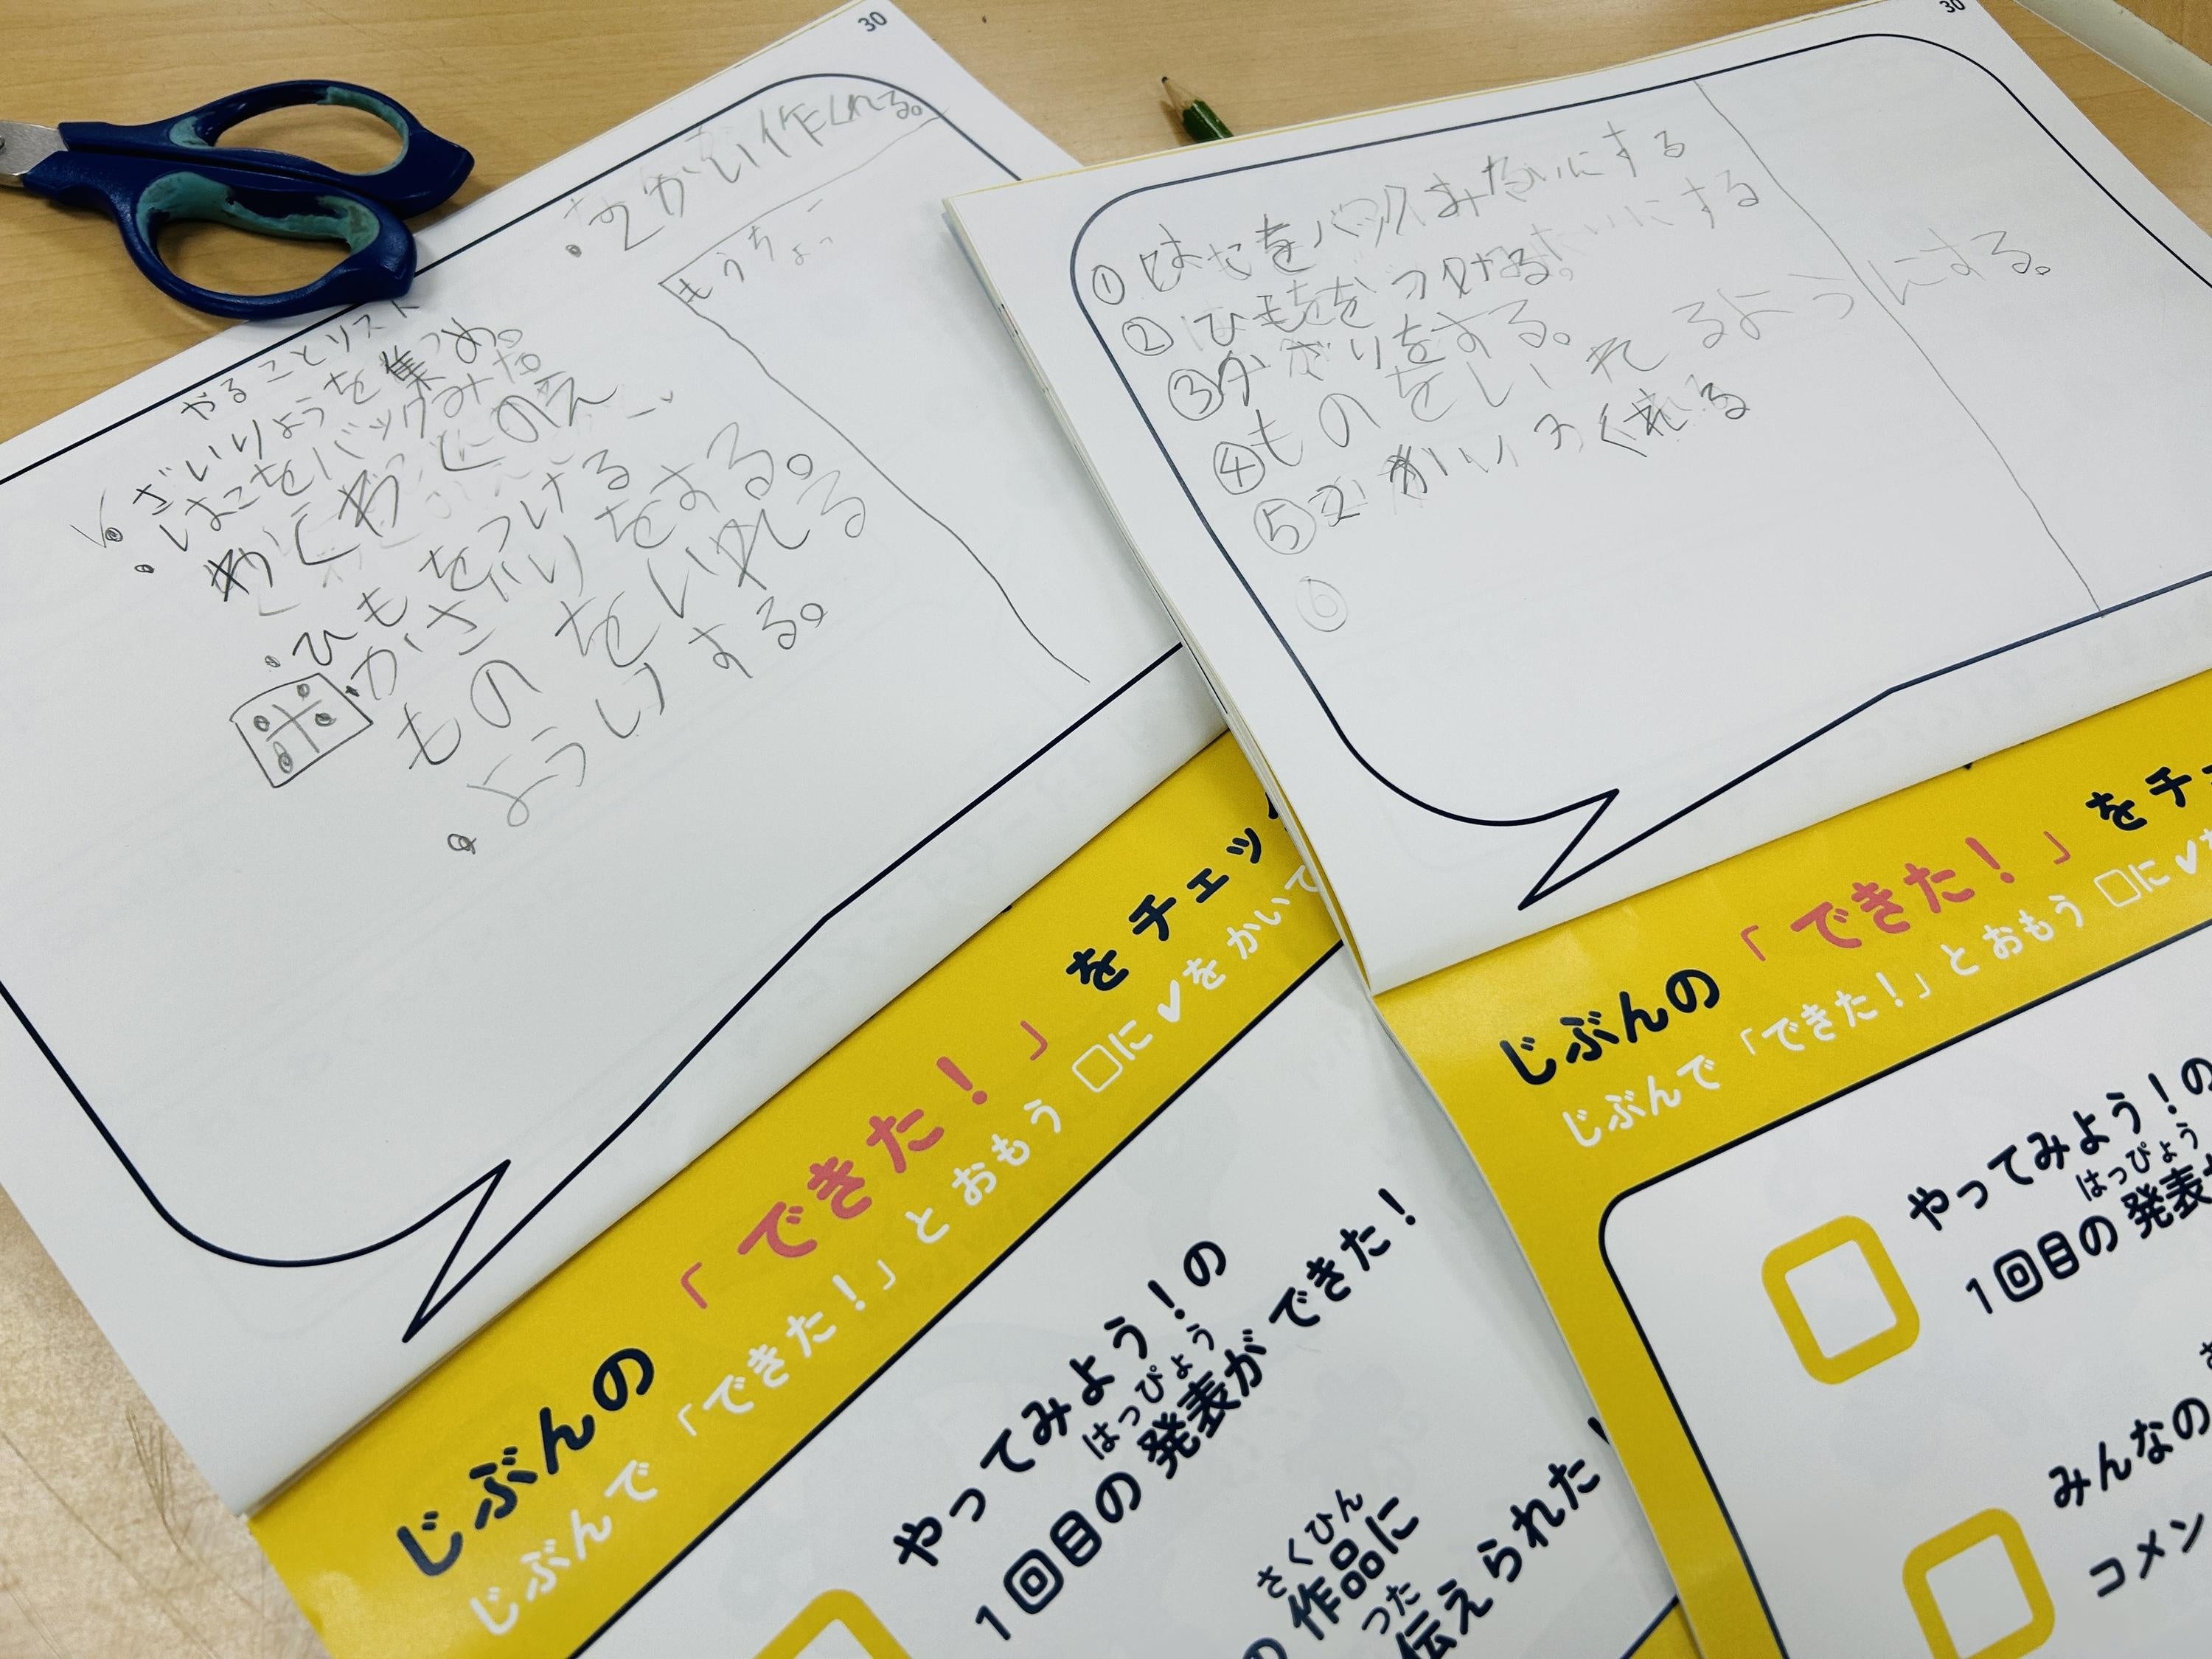 30
2かい作くれる。
もうちょっ
やることリスト
ざいりょうを集つめ。
はこをバックみた
ひもをつける
かざりをする。
ものをいれる
ようにする。
じぶんの「できた！」をチェック
じぶんで「できた！」とおもう □に✓をかいて
やってみよう！の
はっぴょう
1回目の発表ができた！
さくひん
の作品に
つた
伝えられた！
30
① はこをバックみたいにする
② ひもをつける。
③ かざりをする。
④ ものをいれるようにする。
⑤ 2かいつくれる
⑥
じぶんの「できた！」をチェ
じぶんで「できた！」とおもう □に✓を
やってみよう！の
はっぴょう
1回目の発表
みんなの
コメン